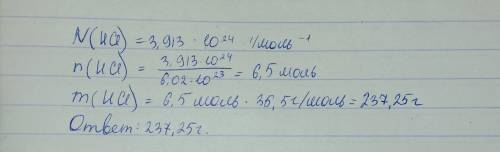 N(HCl) = 3,913 · 10²⁴ 1/моль⁻¹
n(HCl) = 3,913·10²⁴ / 6.02·10²³ = 6,5 моль
m(HCl) = 6,5 моль · 36,5г/моль = 237,25г
Ответ: 237,25г.